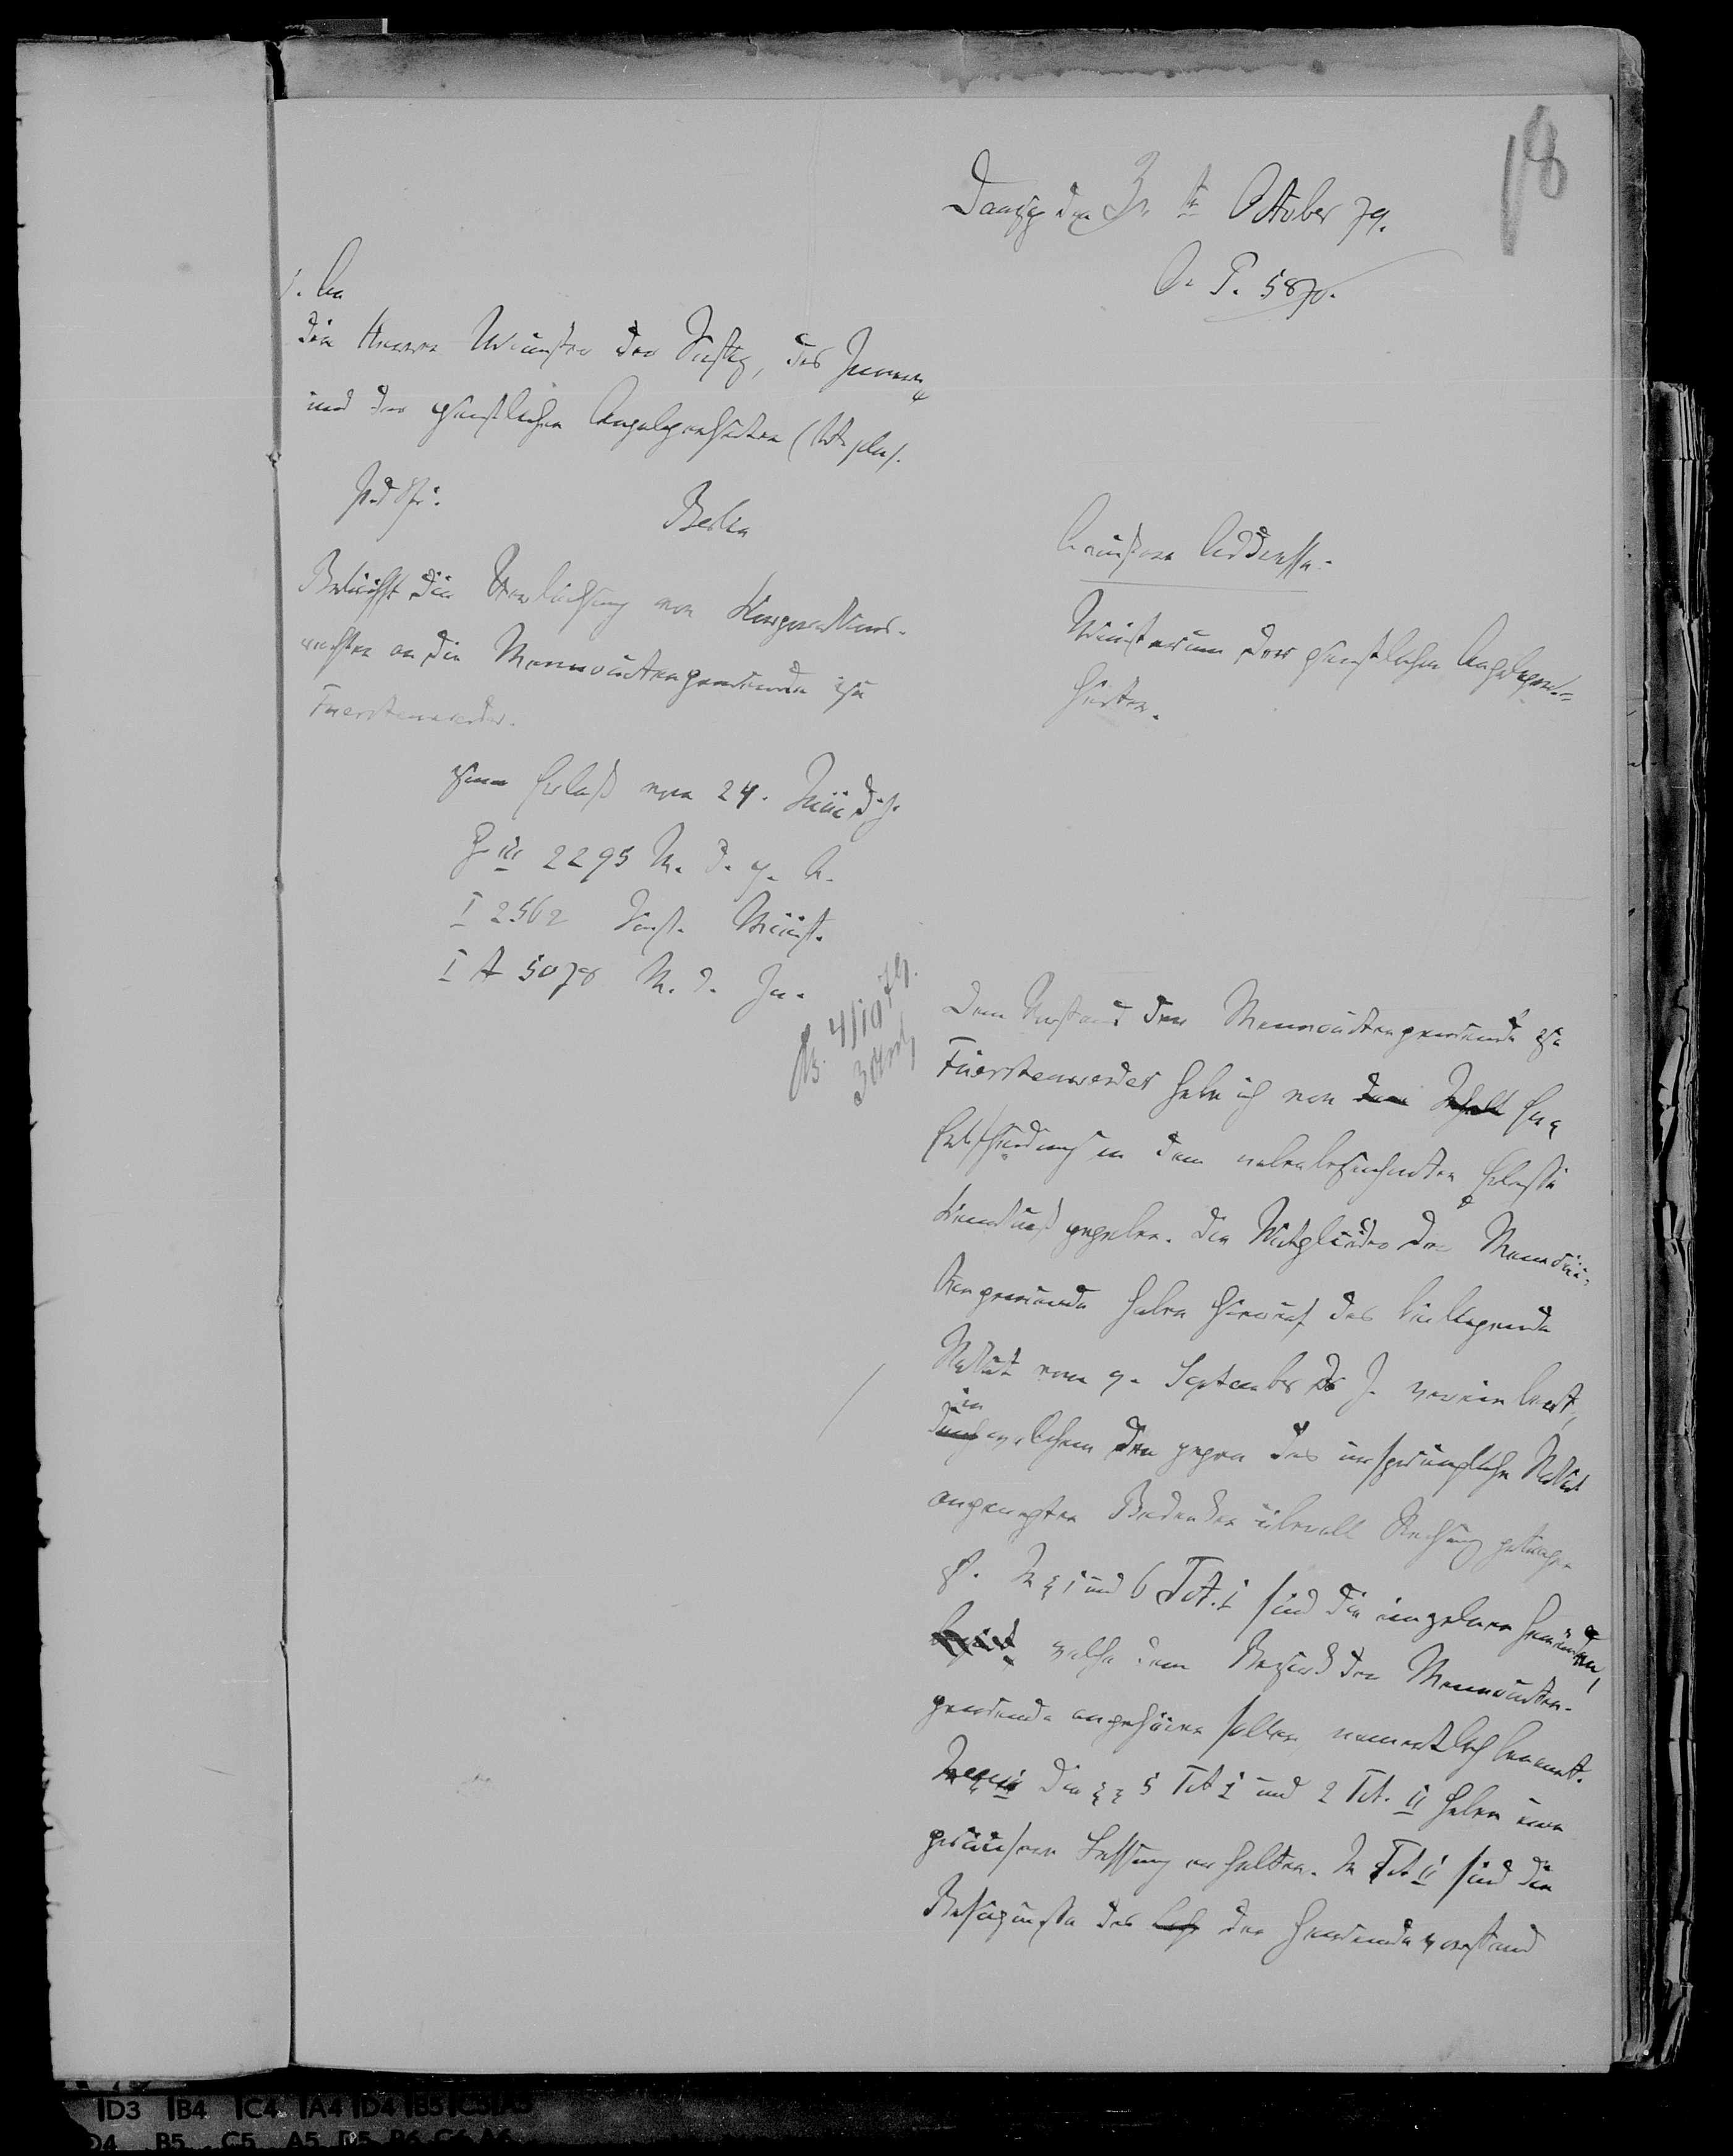 18
Danzig den 3n te October 79.
O. P. 5870.
1. An
die Herren Minister der Justiz, des Innern
und der geistlichen Angelegenheiten
Berlin
Betrifft die Verleihung von Korporations-
rechten an die Mennonitengemeinde zu
Fuerstenwerder.
Erlaß vom 24. Juni d. J.
G III 2295 M. d. g. A.
I 2562 Just. Minist.
I A 5078 M. d. In.
Aeussere Addresse.
Ministerium der geistlichen Angelegen-
heiten.
4/10 79.
Dem Vorstand der Mennonitengemeinde zu
Fuerstenwerder habe ich von dem Inhalt der
Entscheidung in dem nebenbezeichneten Erlasse
Kenntniß gegeben. Die Mitglieder der Mennoni-
tengemeinde haben hierauf das beiliegende
Statut vom 9. September d. J. vereinbart,
in
durch welchem den gegen das ursprüngliche Statut
angeregten Bedenken überall Rechnung getragen
ist. In § 1 und 6 Tit. I sind die einzelnen Gemeinden,
welche dem Bezirk der Mennoniten-
gemeinde angehören sollen namentlich benannt.
Die §§ 5 Tit I und 2 Tit. II haben eine
präcisere Fassung erhalten. In Tit II sind die
Befugnisse des der Gemeindevorstand